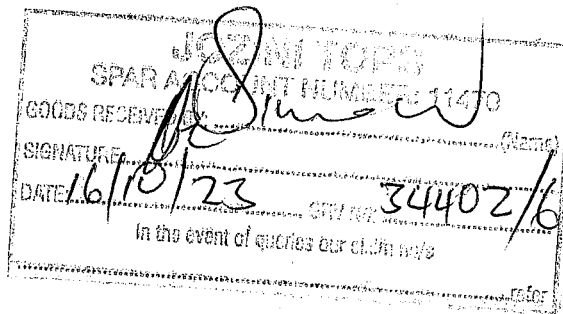 JOZINI TOPS
SPAR ACCOUNT NUMBER: 11470
GOODS RECEIVED (Name)
SIGNATURE:
DATE: 16/10/23 GRV No: 34402/6
In the event of queries our claim no/s
refer